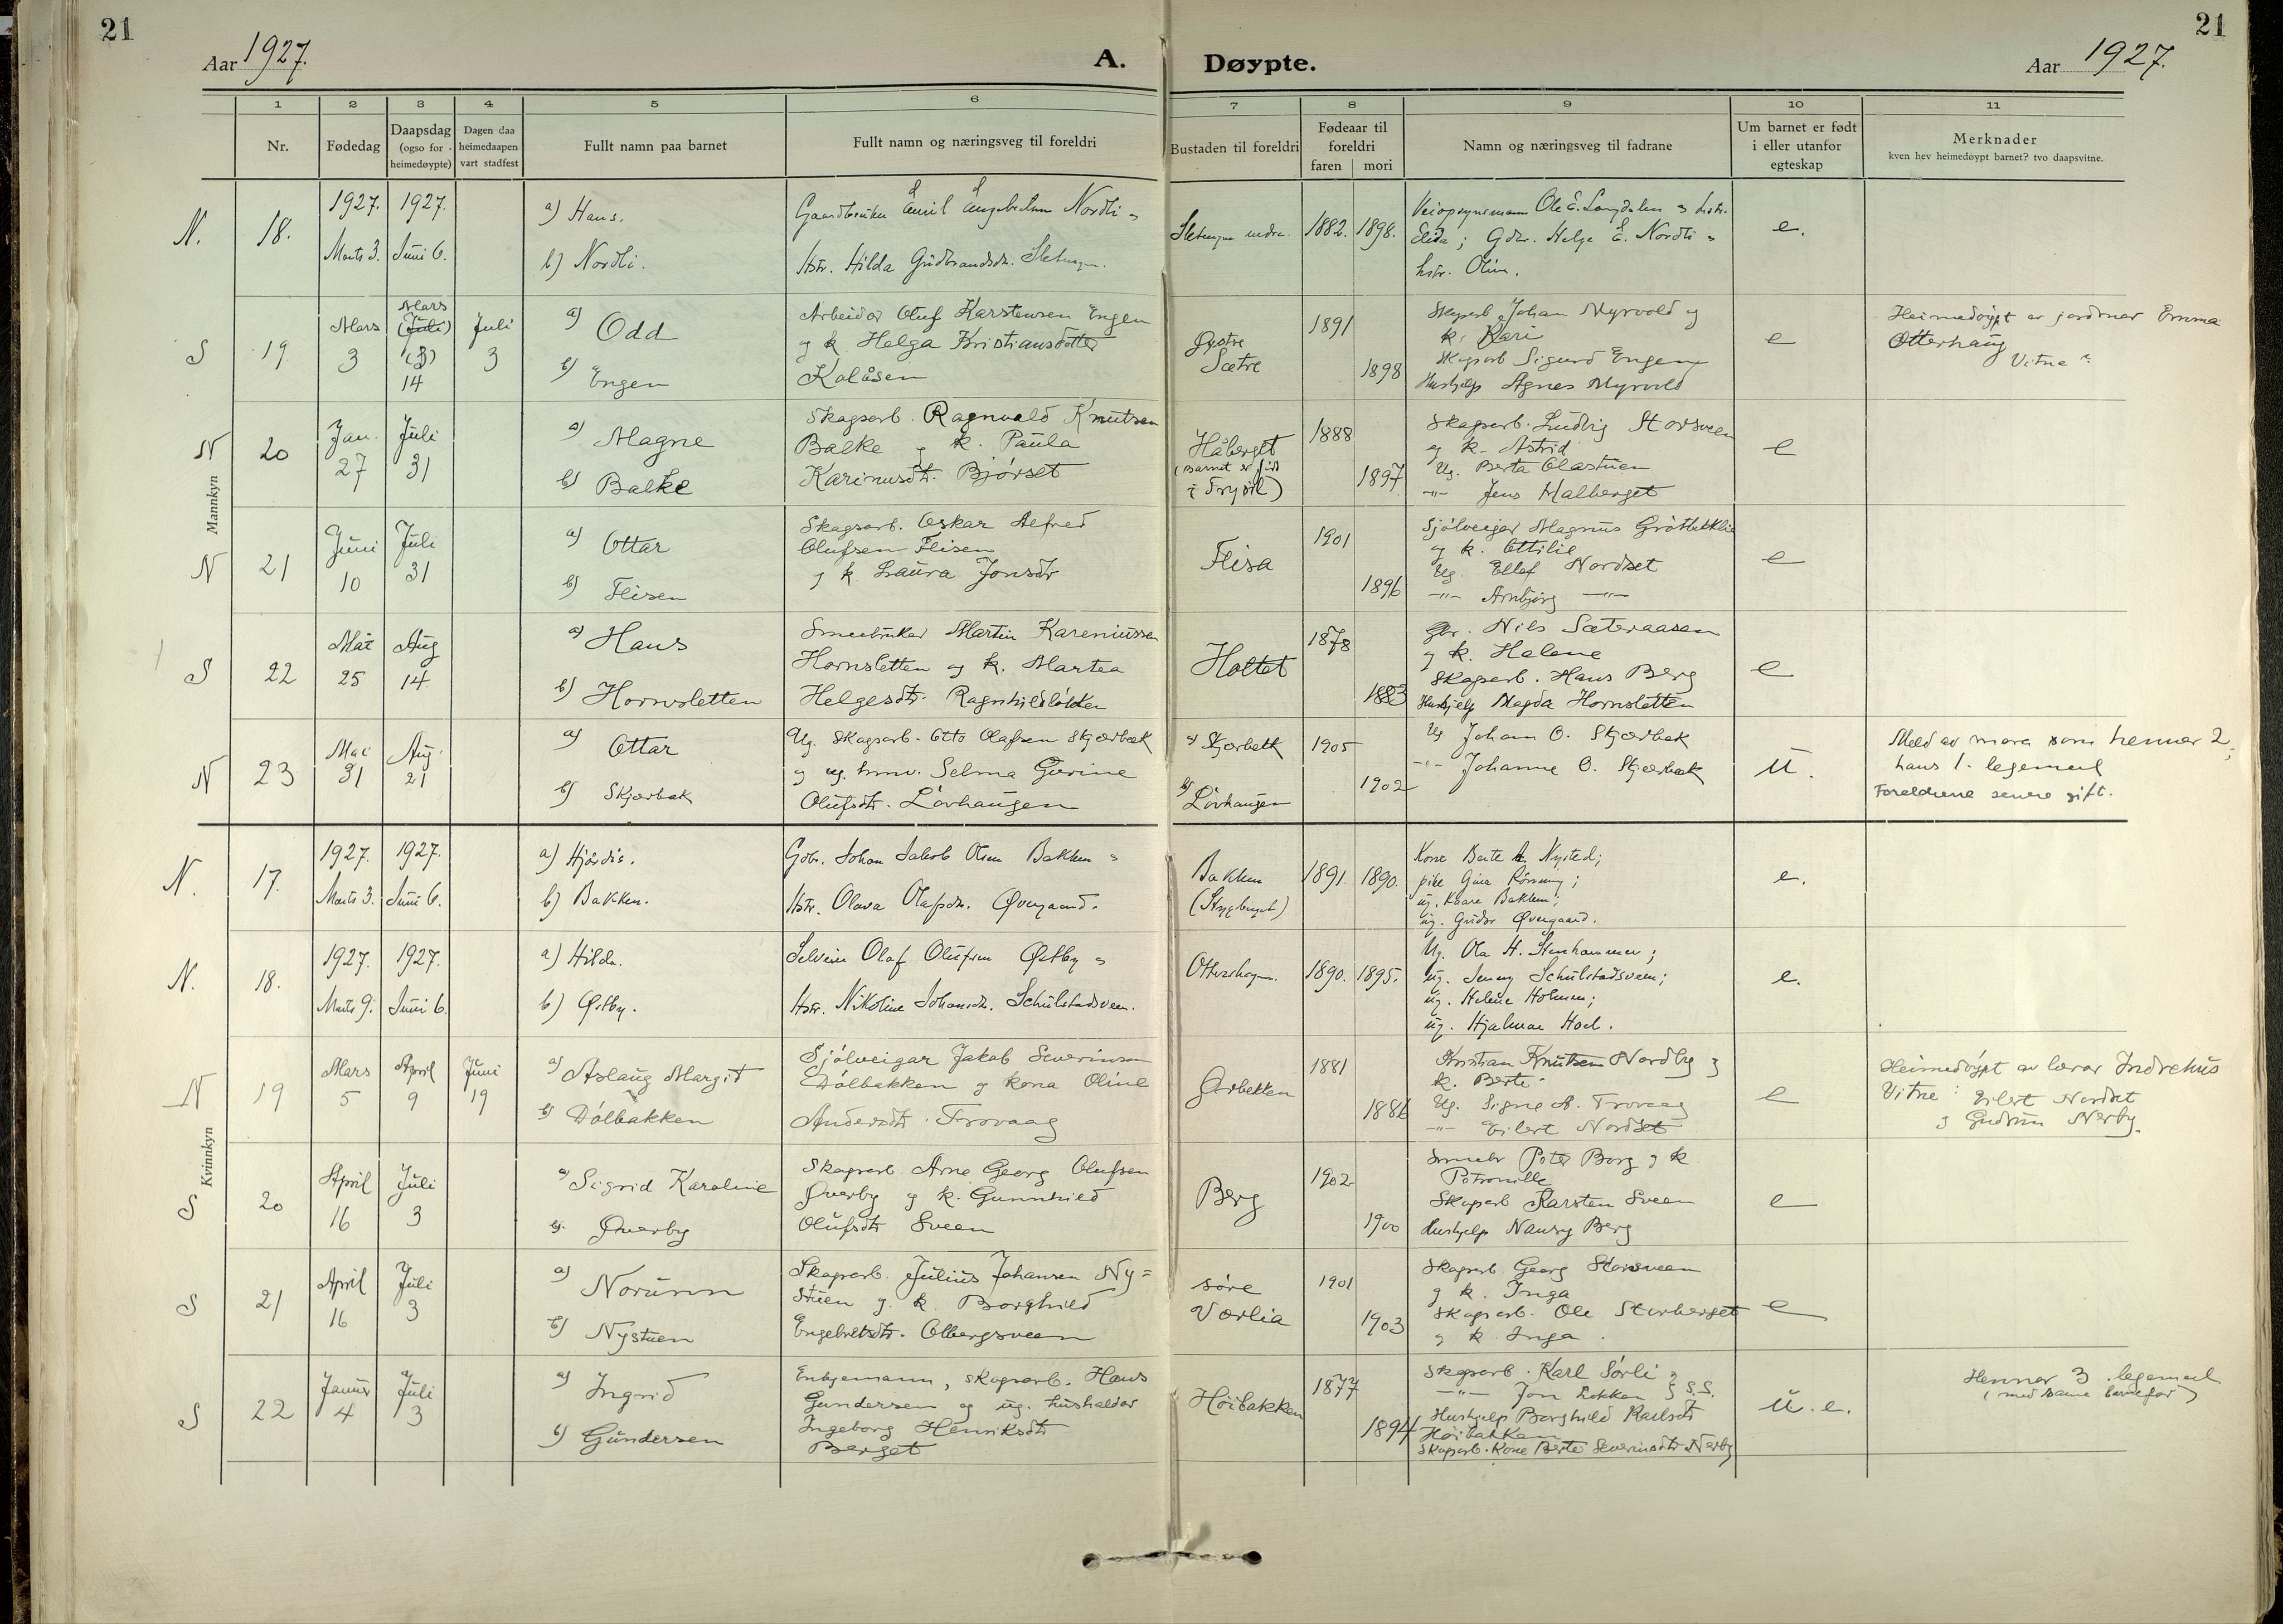 21
21
Aar 1927.
A.
Døypte.
Aar 1927.
1
2
3
4
5
6
7
8
9
10
11
Nr.
Fødedag
Daapsdag
(ogso for
heimedøypte)
Dagen daa
heimedaapen
vart stadfest
Fullt namn paa barnet
Fullt namn og næringsveg til foreldri
Bustaden til foreldri
Fødeaar til
foreldri
faren mori
Namn og næringsveg til fadrane
Um barnet er født
i eller utanfor
egteskap
Merknader
kven hev heimedøypt barnet? tvo daapsvitne.
Mannkyn
N. 18.
1927. Marts 3.
1927. Juni 6.
a) Hans.
b) Nordli.
Gaardbruker Emil Nordli
Hstr. Hilda Gudbrandsdr.
1882. 1898.
Veiopsynsmann Ole E. Langdalen
Elida; Gdbr. Helge E. Nordli
hstr. Oline.
e.
S 19
Mars 3
Mars
(Juli)
(3)
14
Juli 3
a) Odd
b) Engen
Arbeidar Oluf Karstensen Engen
og k. Helga Kristiansdotter
Kolåsen
Øystre
Sætre
1891
1898
Skogsarb. Johan Myrvold og
k. Kari
Skogsarb Sigurd Engen
Hushjelp Agnes Myrvold
e
Heimedøypt av jordmor Emma
Otterhaug
Vitne?
N 20
Jan. 27
Juli 31
a) Magne
b) Balke
Skogsarb. Ragnvald Knutsen
Balke og k. Paula
Karinusdtr. Bjørset
Håberget
(Barnet er født
i Trysil)
1888
1897
Skogsarb. Ludvig Storsveen
og k. Astrid
Ug. Berta Olastuen
-"- Jens Halberget
e
N 21
Juni 10
Juli 31
a) Ottar
b) Flisen
Skogsarb. Oskar Alfred
Olufsen Flisen
og k. Laura Jonsdtr
Flisa
1901
1896
Sjølveigar Magnus Grøtbekklia
og k. Ottilie
Ug. Ellef Nordset
-"- Arnbjørg -"-
e
S 22
Mai 25
Aug 14
a) Hans
b) Hornsletten
Småbrukar Martin Kareniussen
Hornsletten og k. Martea
Helgesdtr. Ragnhildløkken
Holtet
1878
1883
gbr. Nils Sæteraasen
og k. Helene
Skogsarb. Hans Berg
Hushjelp Magda Hornsletten
e
N 23
Mai 31
Aug. 21
a) Ottar
b) Skjærbek
Ug. Skogsarb. Otto Olafsen Skjærbæk
og ug. Selma Gurine
Olufsdtr. Løvhaugen
a) Skjærbekk
b) Løvhaugen
1905
1902
Ug Johan O. Skjærbek
-"- Johanne O. Skjærbæk
U.
Meld av mora som hennar 2,
hans 1. legemaal
Foreldrene senere gift.
Kvinnkyn
N. 17.
1927. Marts 3.
1927. Juni 6.
a) Hjördis.
b) Bakken.
Gbr. Johan Jakob Olsen Bakken
Hstr. Olava Olafsdr. Øvergaard.
Bakken
1891. 1890.
Kone Berte A. Nysted;
pike Gina
ug. Kaare Bakken;
ug. Gudor Øvergaard.
e.
N. 18.
1927. Marts 9.
1927. Juni 6.
a) Hilda.
b) Østby.
Selveier Olaf Olufsen Østby
Hstr. Nikoline Johansdr. Schulstadsveen.
1890. 1895.
Ug. Ola H. Stenhammer;
ug. Jenny Schulstadsveen;
ug. Helene Holmen;
ug. Hjalmar Hoel.
e.
N 19
Mars 5
April 9
Juni 19
a) Aslaug Margit
b) Dølbakken
Sjølveigar Jakob Severinsen
Dølbakken og kona Oline
Andersdtr. Frovaag
Garbekken
1881
1886
Kristian Knutsen Nordby og
k. Berte
Ug. Signe A. Frovaag
-"- Eilert Nordset
e
Heimedøypt av lærar Indrehus
Vitne: Eilert Nordset
og Gudrun Nerby.
S 20
April 16
Juli 3
a) Sigrid Karoline
b. Øverby
Skogsarb. Arne Georg Olufsen
Øverby og k. Gunnhild
Olufsdtr Sveen
Berg
1902
1900
Småbr Peter Berg og k
Petronille
Skogsarb Karsten Sveen
Hushjelp Nanny Berg
e
S 21
April 16
Juli 3
a) Norunn
b) Nystuen
Skogsarb. Julius Johansen Ny=
stuen og k. Borghild
Engebretsdtr. Olbergsveen
søre
Værlia
1901
1903
Skogsarb Georg Storsveen
og k. Inga
Skogsarb. Ole Storberget
og k. Inga.
e
S 22
Januar 4
Juli 3
a) Ingrid
b) Gundersen
Enkjemann, skogsarb. Hans
Gundersen og ug. hushaldar
Ingeborg Henriksdtr
Berget
Høibakken
1877
1894
Skogsarb. Karl Sørli og
-"- Jon Løkken } S.S.
Hushjelp Borghild Karlsdtr
Høibakken
Skogsarb. Kone Berte Severinsdtr Nerby
U. e.
Hennar 3. legemaal
(med same barnefar)